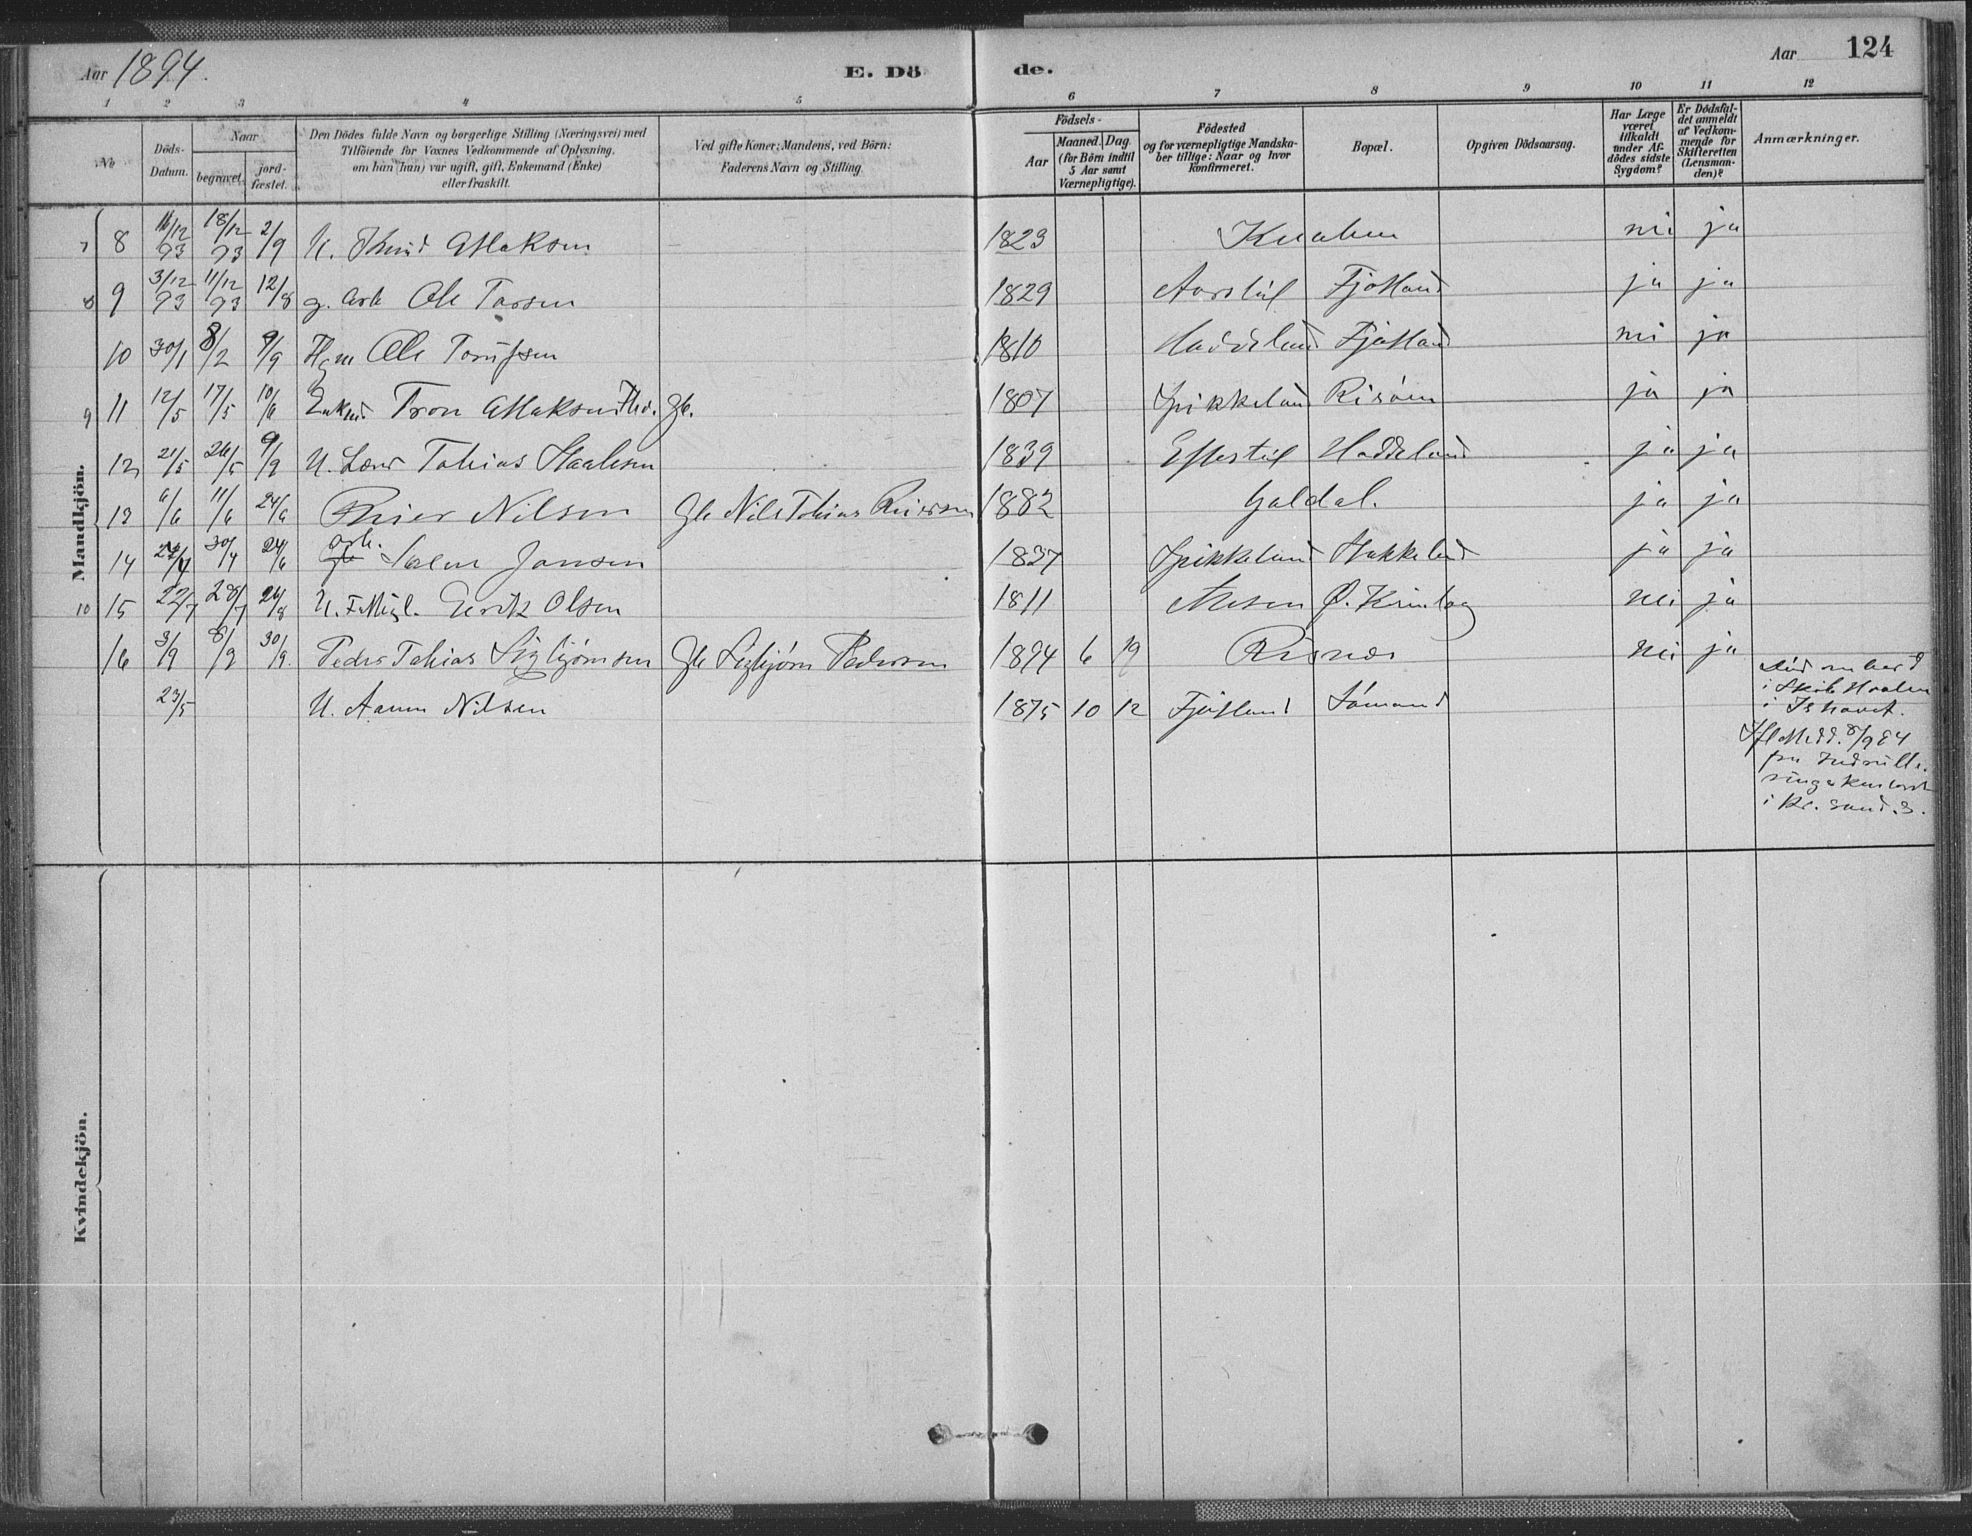 Aar 1894. E. Dö de. Aar 124
1 2 3 4 5 6 7 8 9 10 11 12
No
Döds-Datum.
Naar
begravet.
jord-fæstet.
Den Dödes fulde Navn og borgerlige Stilling (Næringsvei) med
Tilföiende for Voxnes Vedkommende af Oplysning,
om han (hun) var ugift, gift, Enkemand (Enke)
eller fraskilt.
Ved gifte Koner: Mandens, ved Börn:
Faderens Navn og Stilling
Födsels-
Aar
Maaned. Dag
(for Börn indtil
5 Aar samt
Værnepligtige).
Födested
og for værnepligtige Mandska-
ber tillige: Naar og hvor
konfirmeret.
Bopæl.
Opgiven Dödsaarsag.
Har Læge
været
tilkaldt
under Af-
dödes sidste
Sygdom?
Er Dödsfal-
det anmeldt
af Vedkom-
mende for
Skifteretten
(Lensman-
den)?
Anmærkninger.
Mandkjön.
7 8 11/12 93 18/12 93 2/9 U. Knud Atlaksen 1823 Knaben nei ja
8 9 3/12 93 11/12 93 12/8 g. Arb Ole Tarsen 1829 Aarstöl Fjotland ja ja
10 30/1 8/2 9/9 Hgm Ole 1810 Haddeland Fjotland nei ja
9 11 12/5 17/5 10/6 Enkm. Tron Atlaksen Fho. Gb. 1807 Spikkeland Risöen ja ja
12 21/5 26/5 9/9 U. Lærer Tobias Staalesen 1839 Eftestöl Haddeland ja ja
13 6/6 11/6 24/6 Reier Nilsen Gb Nils Tobias Reiersen 1882 Galdal. ja ja
14 24/4 30/4 24/6 arb. Salem Jansen 1837 Spikkeland Stakkeland ja ja
10 15 22/7 28/7 26/8 U. Fattigl. Eerik Olsen 1811 Ø. Kvinlog nei ja
16 3/9 8/9 30/9. Peder Tobias Sigbjørnsen Gb Sigbjørn Pedersen 1894 6 19 Risnes nei ja
23/5 U. Aanen Nilsen 1875 10 12 Fjotland Sömand
död ombord
i Skib
i Ishavet.
Ifl Medd. 8/9 94
fra Indrulle-
ringskontoret
i Kr. sand. S.
Kvindekjön.